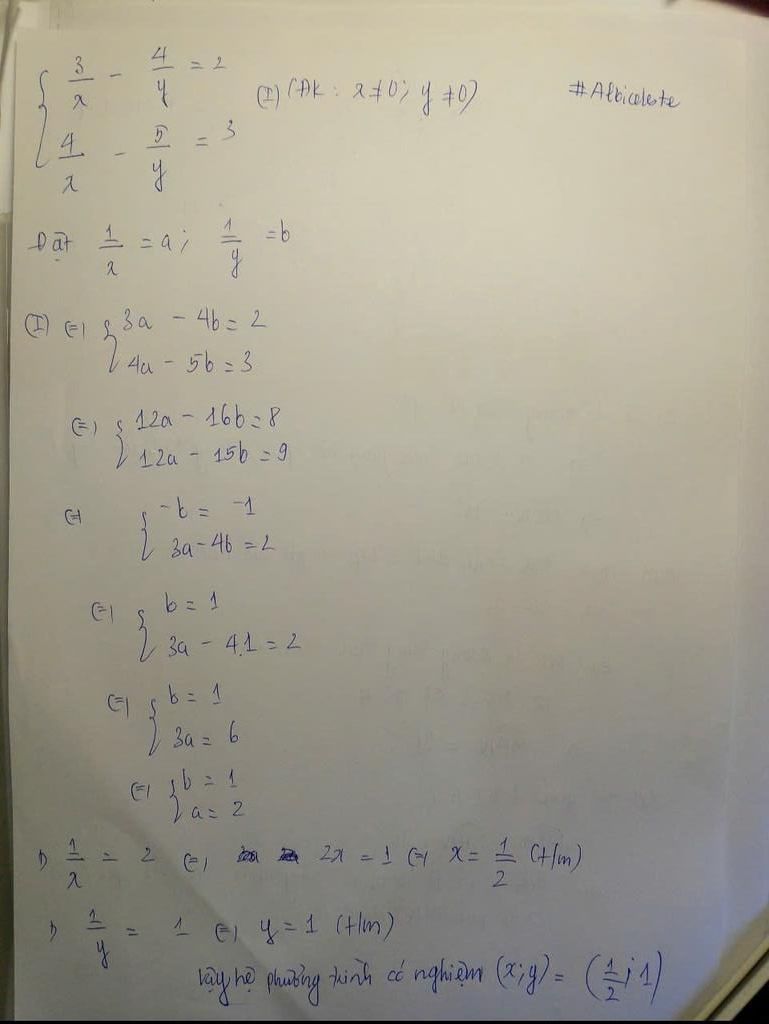 { 3/x - 4/y = 2
(I) (ĐK: x ≠ 0; y ≠ 0)
#Albiceleste
4/x - 5/y = 3
Đặt 1/x = a; 1/y = b
(I) (=) { 3a - 4b = 2
4a - 5b = 3
(=) { 12a - 16b = 8
12a - 15b = 9
(=) { -b = -1
3a - 4b = 2
(=) { b = 1
3a - 4.1 = 2
(=) { b = 1
3a = 6
(=) { b = 1
a = 2
1/x = 2 (=) 2x = 1 (=) x = 1/2 (t/m)
1/y = 1 (=) y = 1 (t/m)
Vậy hệ phương trình có nghiệm (x;y) = (1/2; 1)